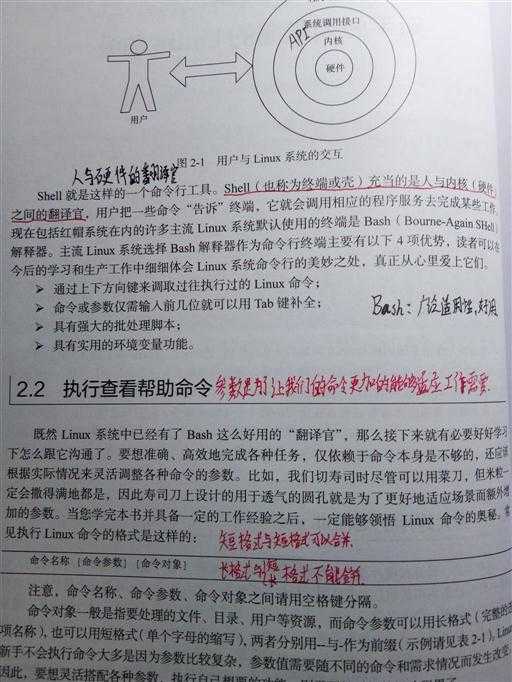 系统调用接口
API
内核
硬件
用户
人与硬件的翻译官
图 2-1 用户与 Linux 系统的交互
Shell 就是这样的一个命令行工具。Shell（也称为终端或壳）充当的是人与内核（硬件）
之间的翻译官，用户把一些命令“告诉”终端，它就会调用相应的程序服务去完成某些工作。
现在包括红帽系统在内的许多主流 Linux 系统默认使用的终端是 Bash（Bourne-Again SHell）
解释器。主流 Linux 系统选择 Bash 解释器作为命令行终端主要有以下 4 项优势，读者可以在
今后的学习和生产工作中细细体会 Linux 系统命令行的美妙之处，真正从心里爱上它们。
➢ 通过上下方向键来调取过往执行过的 Linux 命令；
➢ 命令或参数仅需输入前几位就可以用 Tab 键补全；
Bash：广泛适用性，好用
➢ 具有强大的批处理脚本；
➢ 具有实用的环境变量功能。
2.2 执行查看帮助命令
参数是为了让我们的命令更加的能够适应工作需要.
既然 Linux 系统中已经有了 Bash 这么好用的“翻译官”，那么接下来就有必要好好学习
下怎么跟它沟通了。要想准确、高效地完成各种任务，仅依赖于命令本身是不够的，还应该
根据实际情况来灵活调整各种命令的参数。比如，我们切寿司时尽管可以用菜刀，但米粒一
定会撒得满地都是，因此寿司刀上设计的用于透气的圆孔就是为了更好地适应场景而额外增
加的参数。当您学完本书并具备一定的工作经验之后，一定能够领悟 Linux 命令的奥秘。常
见执行 Linux 命令的格式是这样的：
短格式与短格式可以合并.
命令名称 [命令参数] [命令对象]
长格式与 短 长 格式不能合并.
注意，命令名称、命令参数、命令对象之间请用空格键分隔。
命令对象一般是指要处理的文件、目录、用户等资源，而命令参数可以用长格式（完整的选
项名称），也可以用短格式（单个字母的缩写），两者分别用--与-作为前缀（示例请见表 2-1）。Linux
新手不会执行命令大多是因为参数比较复杂，参数值需要随不同的命令和需求情况而发生改变。
因此，要想灵活搭配各种参数，执行自己想要的功能